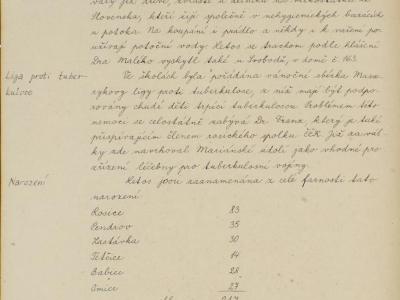 Slovenska, kteří žijí společně v nehygienických barácích
u potoka. Na koupání i prádlo a někdy i k vaření po-
užívají potoční vody. Letos se trachom podle hlášení
Dra Malého vyskytl také u Svobodů, v domě č. 163.
Liga proti tuber-
kulose
Ve školách byla pořádána vánoční sbírka Masa-
rykovy ligy proti tuberkulose, z níž mají být podpo-
rovány chudé děti trpící tuberkulosou. Problémem této
nemoci se celostátně zabývá Dr. Franz, který je také
přispívajícím členem rosického spolku ČČK. Již za vál-
ky zde navrhoval Mariánské údolí jako vhodné pro
zřízení léčebny pro tuberkulosní vojíny.
Narození
Letos jsou zaznamenána z celé farnosti tato
narození
Rosice 83
Pendrov 35
Zastávka 30
Tetčice 14
Babice 28
Omice 27
217